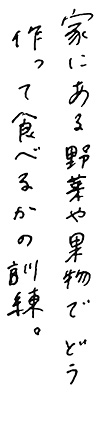 家にある野菜や果物でどう
作って食べるかの訓練。